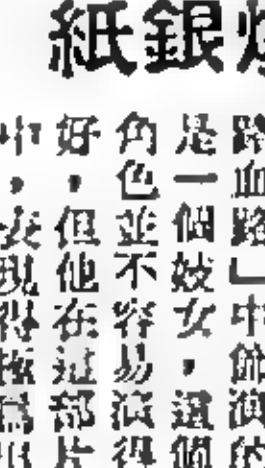 銀紙
路血路」中飾演的
是一個妓女，這個
角色並不容易演得
好，但他在這部片
中，表現得極為出